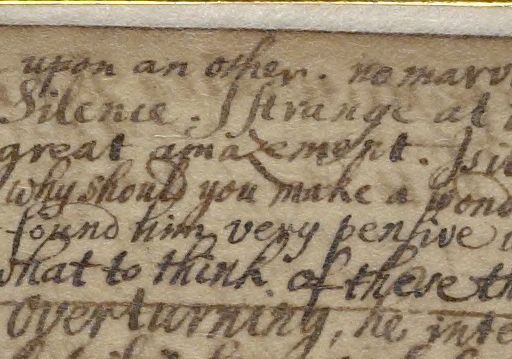 upon an other. no marv
Silence. I strange at
great amazement. Is it
why should you make a wond
found him very pensive
what to think of these th
Overturning, he inte